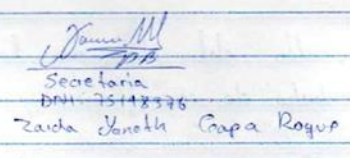 Secretaria
DNI 75148376
Zaida Yaneth Ccapa Roque